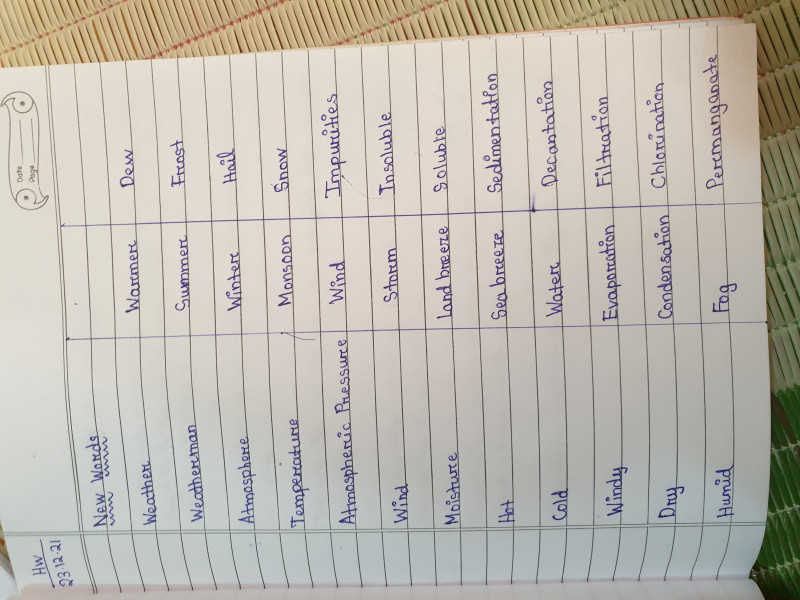 HW
23.12.21
Date
Page
New Words
Weather Warmer Dew
Weatherman Summer Frost
Atmosphere Winter Hail
Temperature Monsoon Snow
Atmospheric Pressure Wind Impurities
Wind Storm Insoluble
Moisture Land breeze Soluble
Hot Sea breeze Sedimentation
Cold Water Decantation
Windy Evaporation Filtration
Dry Condensation Chlorination
Humid Fog Permanganate